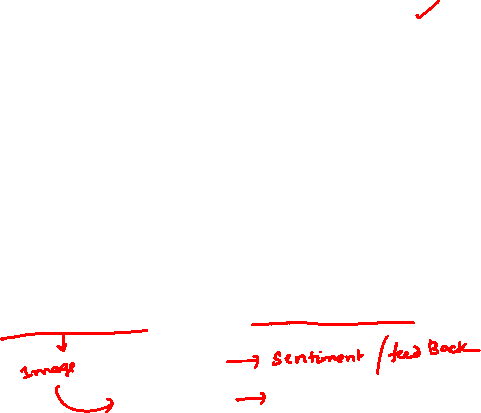 Image
→ Sentiment / feed Back
→